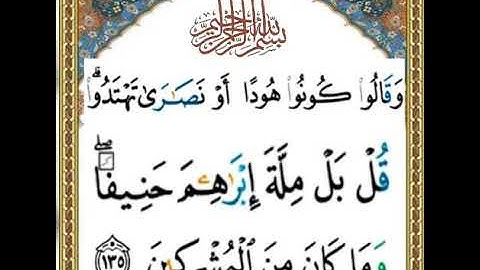 بسم الله الرحمن الرحيم
وَقَالُوا۟ كُونُوا۟ هُودًا أَوْ نَصَٰرَىٰ تَهْتَدُوا۟ ۗ
قُلْ بَلْ مِلَّةَ إِبْرَٰهِۦمَ حَنِيفًا ۖ
وَمَا كَانَ مِنَ الْمُشْرِكِينَ ١٣٥